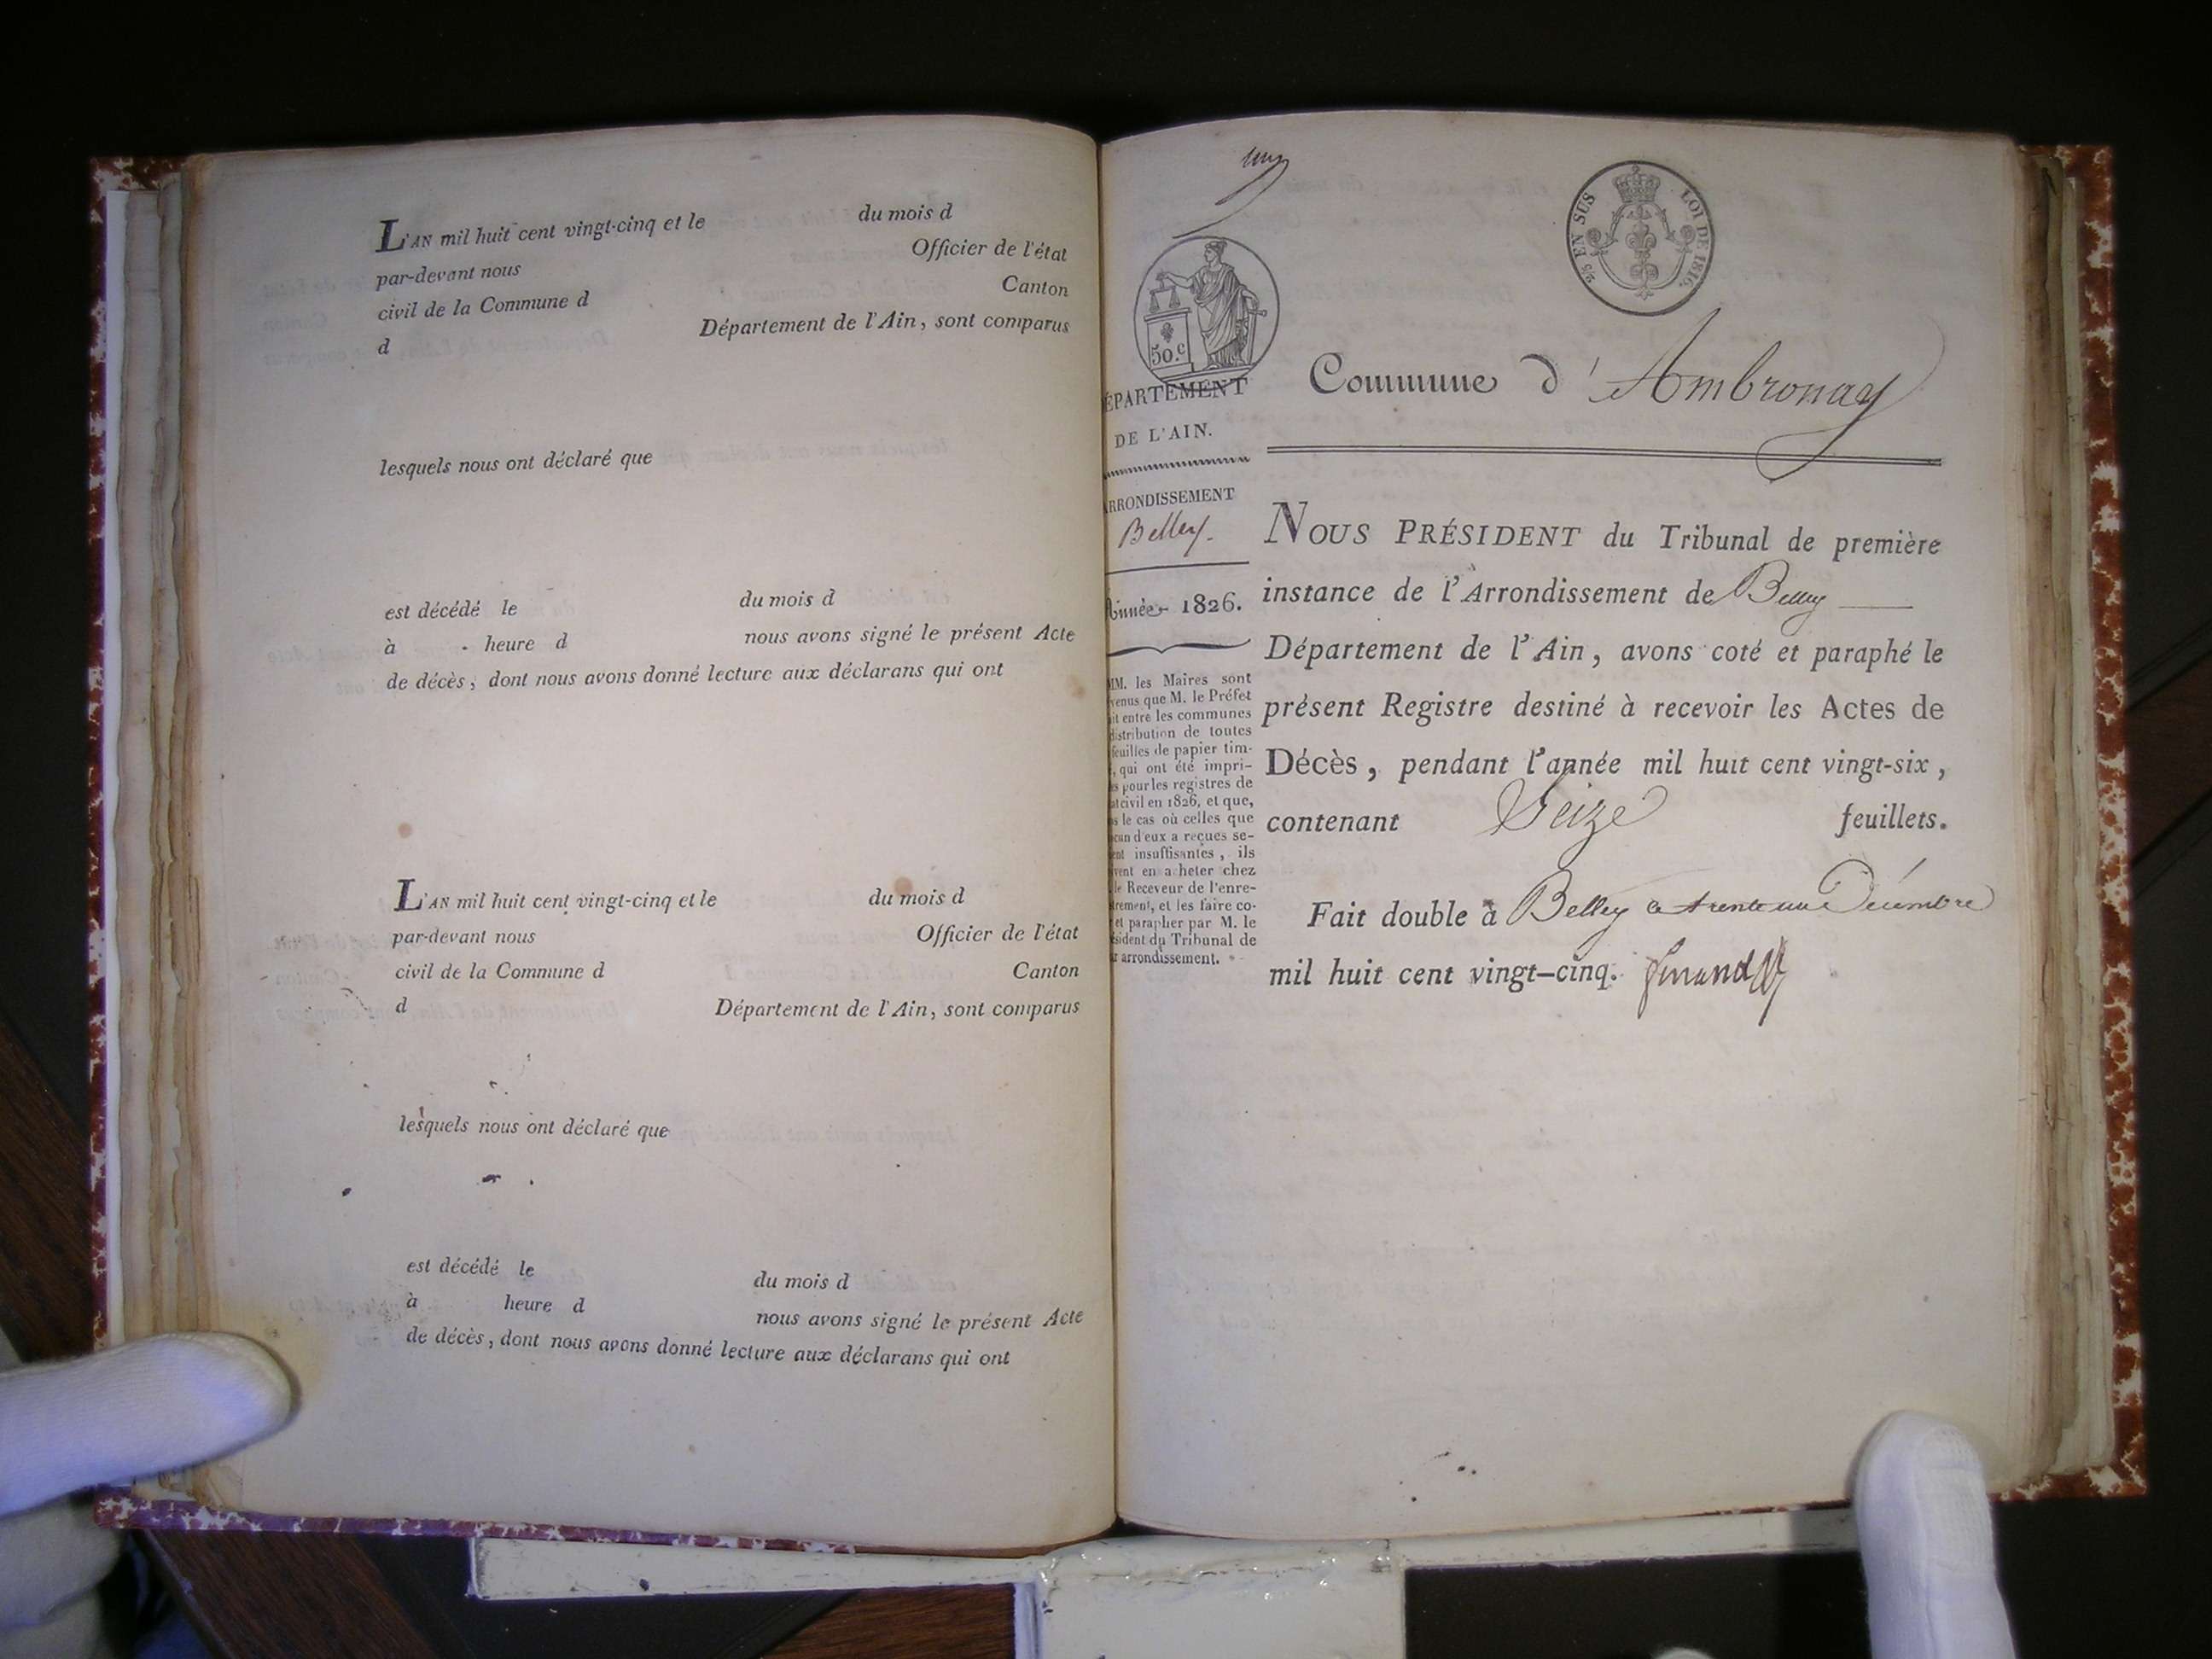 L'AN mil huit cent vingt-cinq et le du mois d
par-devant nous Officier de l'état
civil de la Commune d Canton
d Département de l'Ain, sont comparus
lesquels nous ont déclaré que
est décédé le du mois d
à heure d nous avons signé le présent Acte
de décès, dont nous avons donné lecture aux déclarans qui ont
L'AN mil huit cent vingt-cinq et le du mois d
par-devant nous Officier de l'état
civil de la Commune d Canton
d Département de l'Ain, sont comparus
lesquels nous ont déclaré que
est décédé le du mois d
à heure d nous avons signé le présent Acte
de décès, dont nous avons donné lecture aux déclarans qui ont
EN SUS LOI DE 1816.
50.c
ÉPARTEMENT
DE L'AIN.
RRONDISSEMENT
Belley.
Année 1826.
MM. les Maires sont
venus que M. le Préfet
it entre les communes
distribution de toutes
feuilles de papier tim-
, qui ont été impri-
s pour les registres de
at civil en 1826, et que,
s le cas où celles que
cun d'eux a reçues se-
ent insuffisantes, ils
vent en acheter chez
le Receveur de l'enre-
trement, et les faire co-
et parapher par M. le
ésident du Tribunal de
r arrondissement.
Commune d'Ambronay
NOUS PRÉSIDENT du Tribunal de première
instance de l'Arrondissement de Belley
Département de l'Ain, avons coté et paraphé le
présent Registre destiné à recevoir les Actes de
Décès, pendant l'année mil huit cent vingt-six,
contenant Seize feuillets.
Fait double à Belley ce trente un Décembre
mil huit cent vingt-cinq.